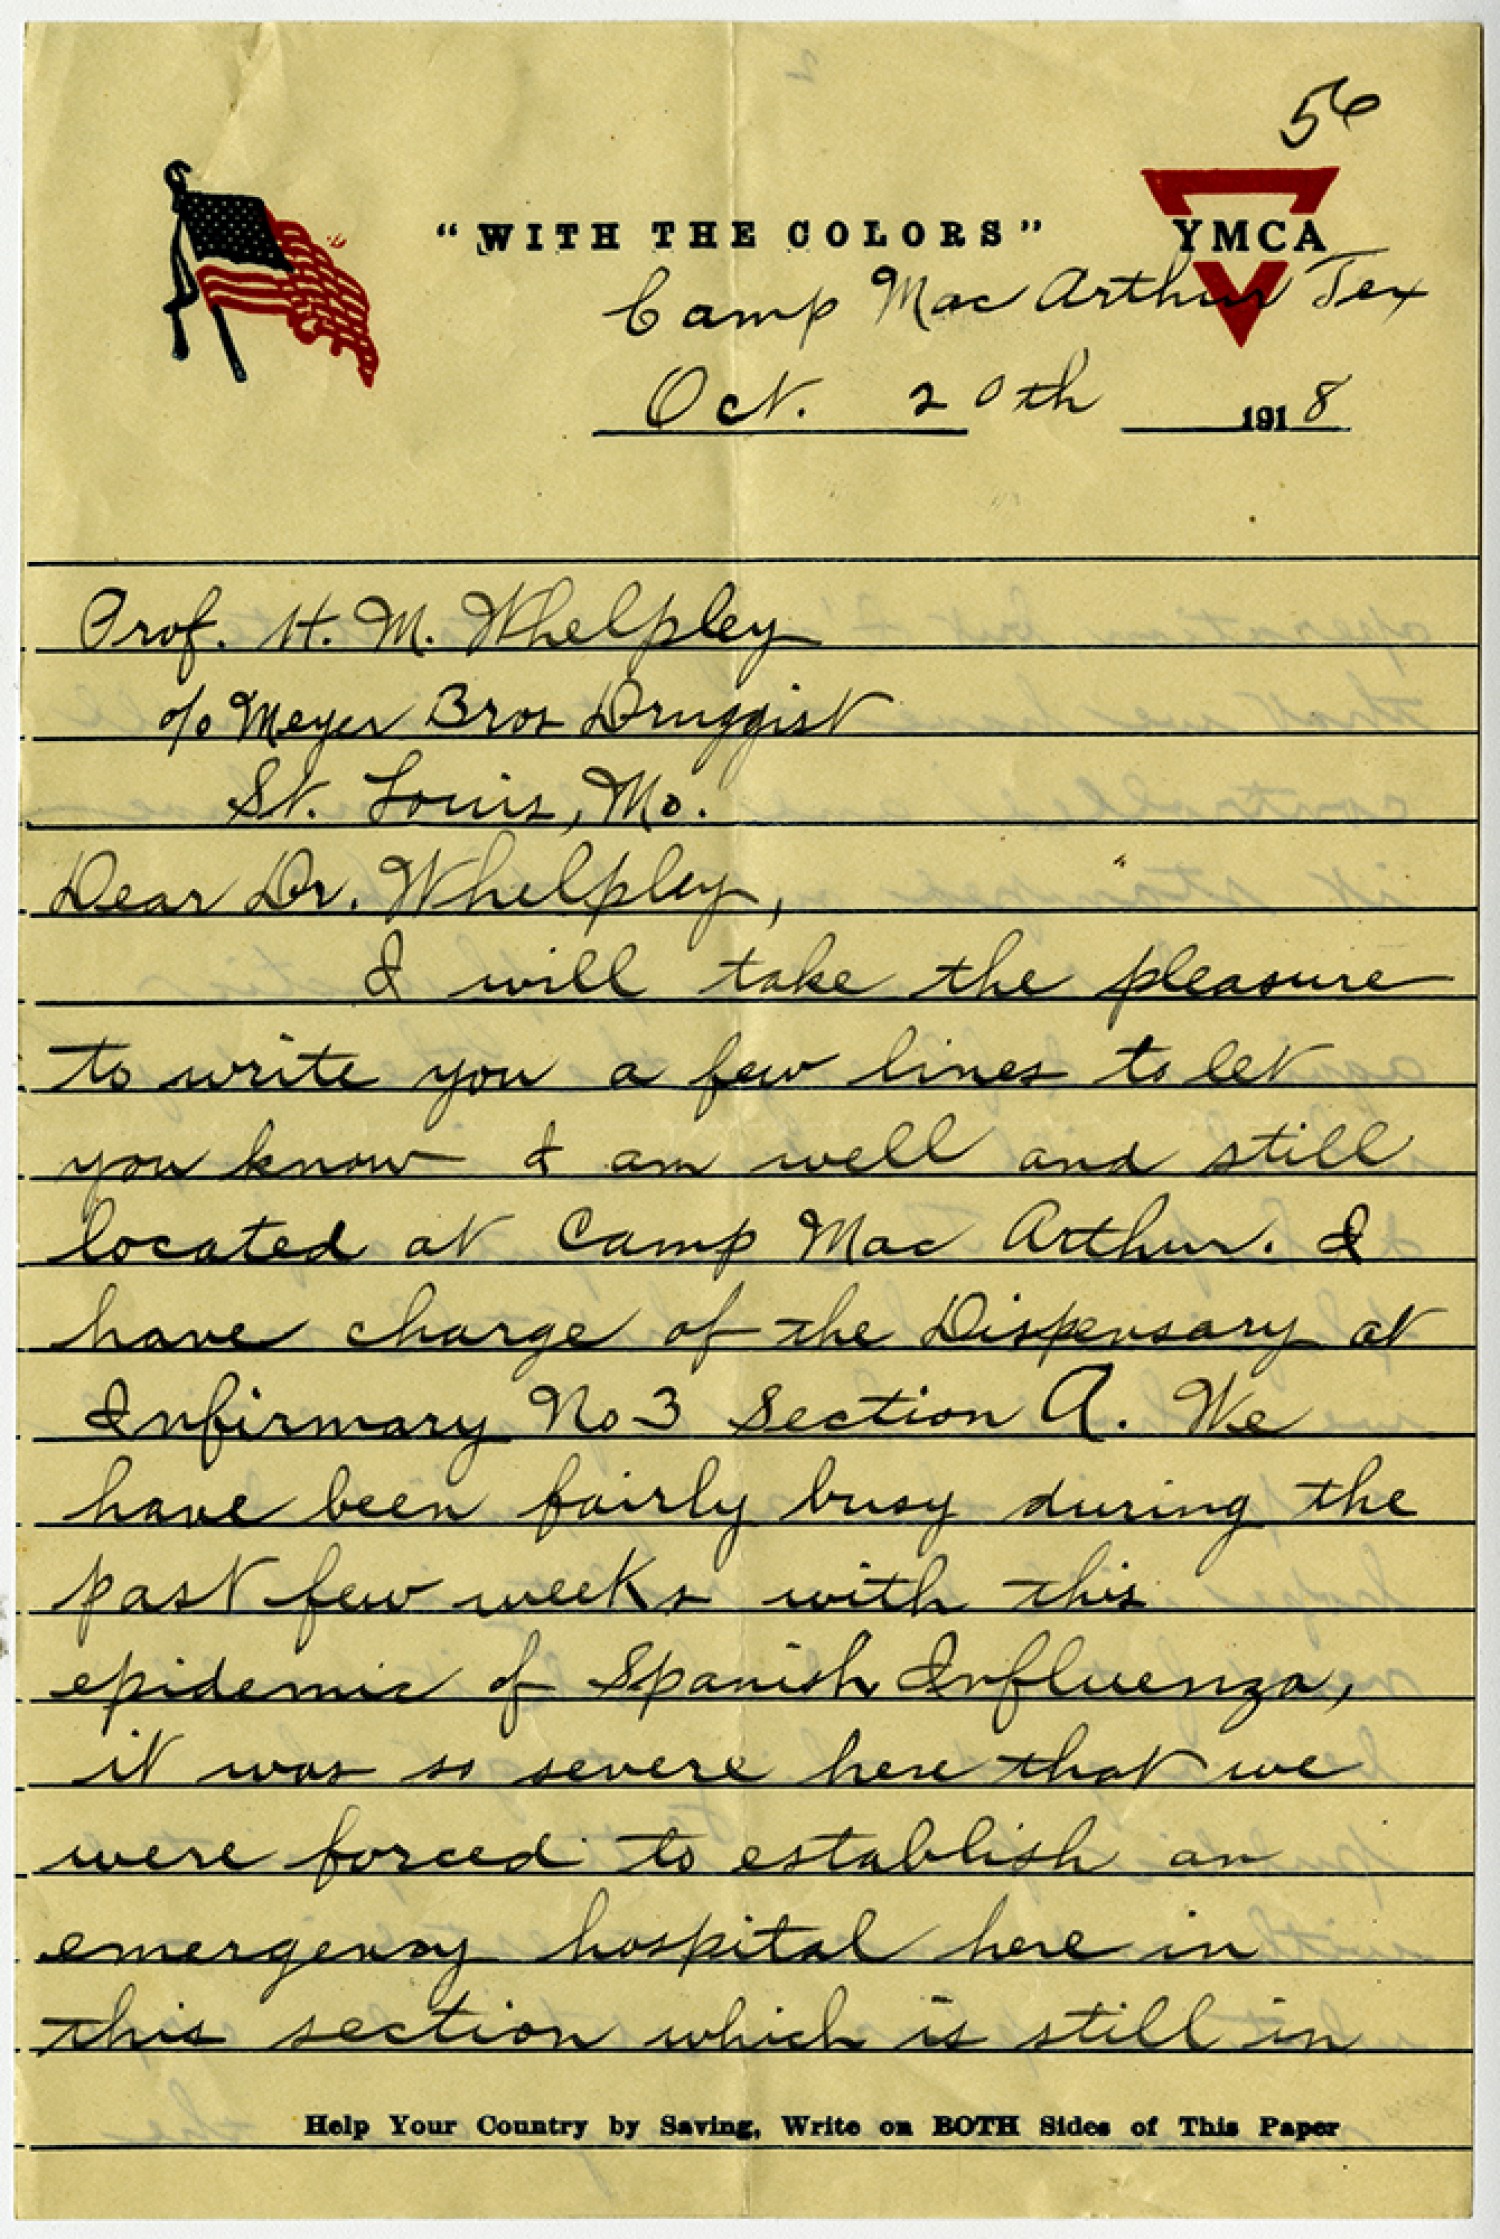 56
"WITH THE COLORS"
YMCA
Camp Mac Arthur Tex
Oct. 20th 1918
Prof. H. M. Whelpley
c/o Meyer Bros Druggist
St. Louis, Mo.
Dear Dr. Whelpley,
I will take the pleasure
to write you a few lines to let
you know I am well and still
located at Camp Mac Arthur. I
have charge of the Dispensary at
Infirmary No 3 Section A. We
have been fairly busy during the
past few weeks with this
epidemic of Spanish Influenza,
it was so severe here that we
were forced to establish an
emergency hospital here in
this section which is still in
Help Your Country by Saving, Write on BOTH Sides of This Paper